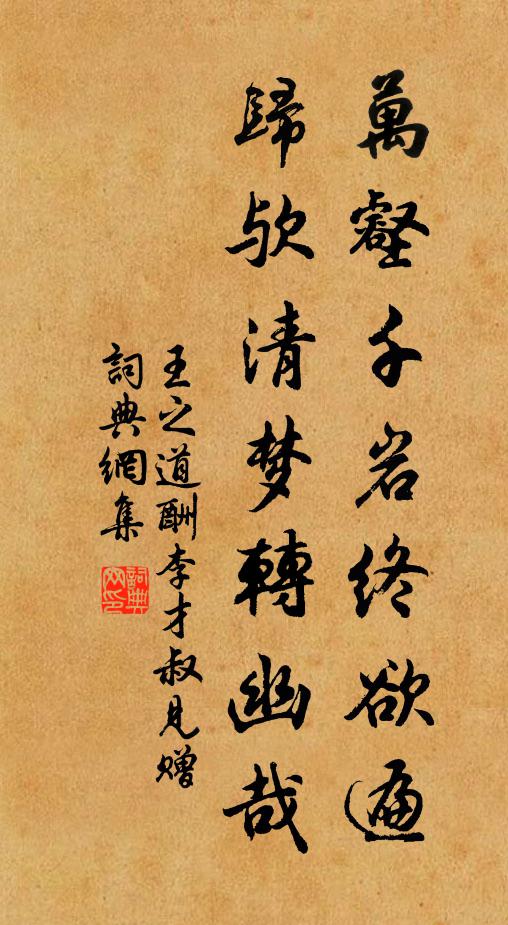 萬壑千岩終欲遍
歸欤清梦轉幽哉
王之道酬李才叔見贈
詞典網集
詞典
网印